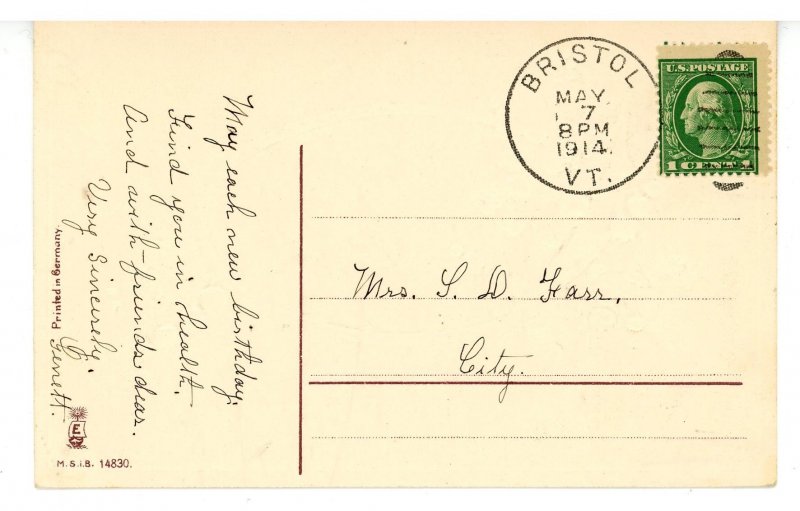 May each new birthday.
Find you in health.
And with friends dear.
Very Sincerely.
Genett.
Printed in Germany
E
M.S.i.B. 14830.
BRISTOL
MAY
7
8 PM
1914.
VT.
U.S. POSTAGE
1 CENT 1
Mrs. S. D. Farr.
City.